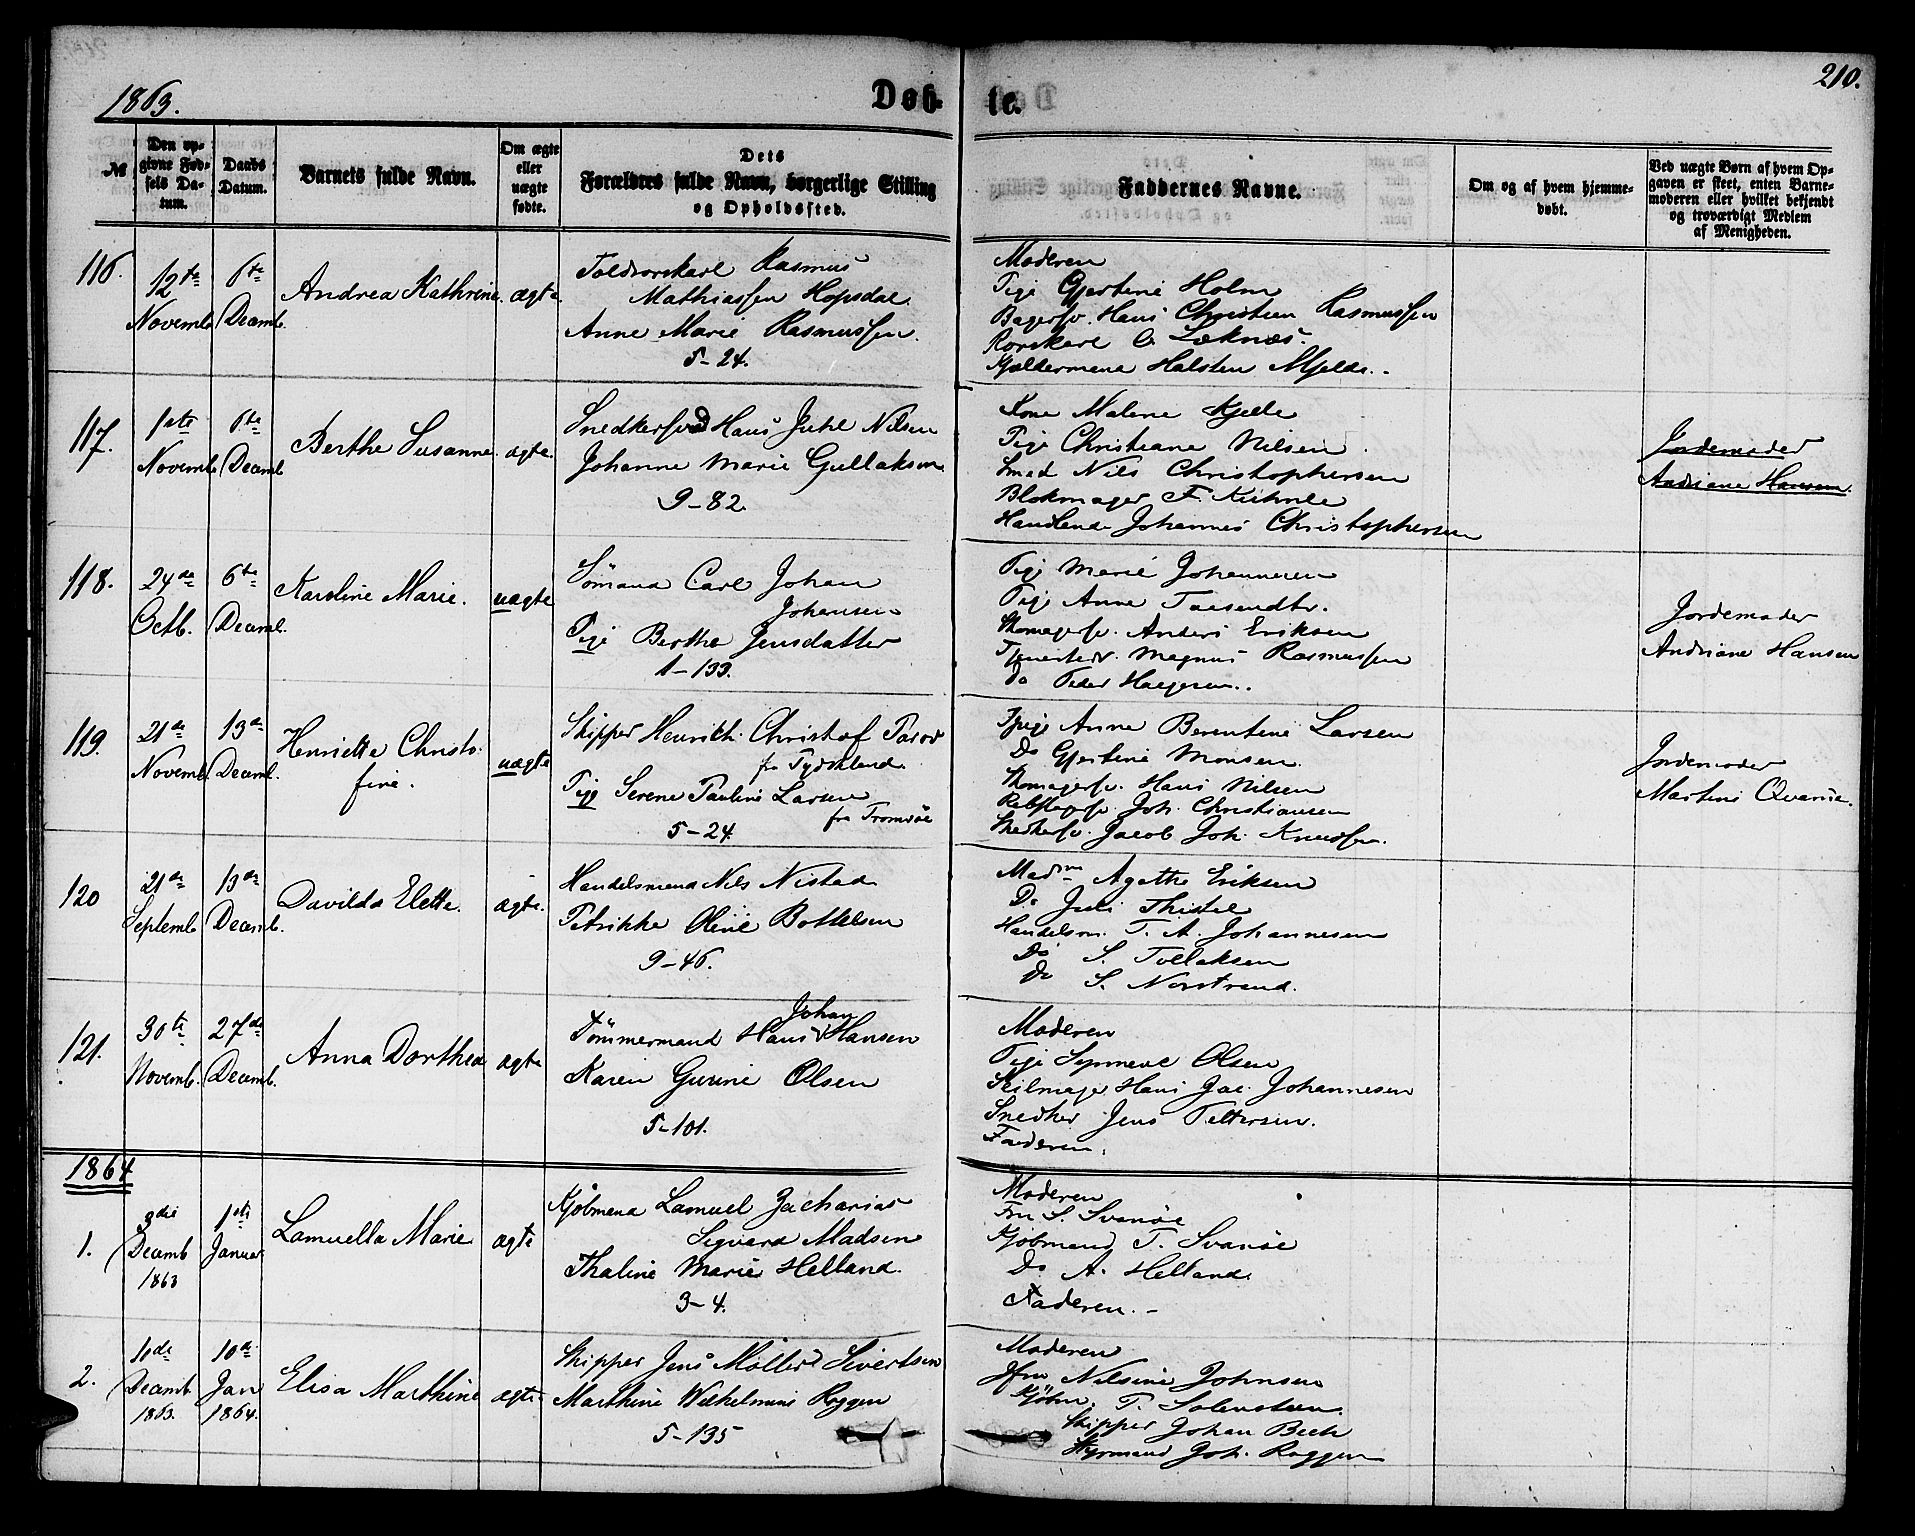 1863.
Døb-
te.
210.
№
Den op-
givne Fød-
sels Da-
tum.
Daabs
Datum.
Barnets fulde Navn.
Om ægte
eller
uægte
fødte.
Dets
Forældres fulde Navn, borgerlige Stilling
og Opholdssted.
Faddernes Navne.
Om og af hvem hjemme-
døbt.
Ved uægte Børn af hvem Op-
gaven er skeet, enten Barne-
moderen eller hvilket bekjendt
og troværdigt Medlem
af Menigheden.
116.
12te
Novemb.
6te
Decemb.
Andrea Kathrine.
ægte
Toldrorskarl Rasmus
Mathiassen Hopsdal.
Anne Marie Rasmussen.
5-24.
Moderen
Pige Gjertine Holm
Bagersv. Hans Christian Rasmussen
Rorskarl O. Leknæs.
Kjældermand Halsten Mjelde.
117.
1ste
Novemb.
6te
Decemb.
Berthe Susanne.
ægte.
Snedkersvd Hans Juhl Nilsen
Johanne Marie Gullaksen.
9-82.
Kone Malene Kjelle
Pige Christiane Nilsen.
Smed Nils Christophersen
Blokmager F. Kühnle
Handlende Johannes Christophersen
Jordemoder
Andriane Hansen.
118.
24de
Octb.
6te
Decemb.
Karoline Marie.
uægte
Sømand Carl Johan
Johansen
Pige Berthe Jensdatter
1-133.
Pige Marie Johannesen
Pige Anne
Skomagersv. Anders Eriksen
Magnus Rasmussen
do Peder
Jordemoder
Andriane Hansen
119.
21de
Novemb.
13de
Decemb.
Henriette Christo-
fine.
uægte
Skipper Henrich Christof
fra Tydskland.
Pige Serene Pauline Larsen
fra Tromsöe
5-24.
Pige Anne Berentine Larsen
Do Gjertine Monsen.
Skomagersv. Hans Nilsen
Rebslagersv. Joh. Christiansen
Snedkersv. Jacob Joh. Knudsen.
Jordemoder
Martine Qvarne.
120
21de
Septemb.
13de
Decemb.
Davilda Elette.
ægte.
Handelsmand Nils Nistad
Petrikke Oline Bottelsen
9-46.
Madm Agathe Eriksen
Do Juli Thistel
Handelsm. T. A. Johannesen
Do S. Tollaksen
Do S. Norstrand.
121.
30te
Novemb.
27de
Decemb.
Anna Dorthea
ægte
Johan
Tømmermand Hans Hansen
Karen Gurine Olsen
5-101.
Moderen
Pige Synneve Olsen
Seilmager Hans Jac. Johannesen
Snedker Jens Pettersen.
Faderen.
1864
1.
3die
Decemb
1863
1ste
Januar
Lamuella Marie
ægte
Kjøbmand Lamuel Zacharias
Sigvard Madsen
Thaline Marie Helland.
3-4.
Moderen
Fru S. Svanøe
Kjøbmand T. Svanøe
Do A. Helland.
Faderen.
2.
11de
Decemb
1863.
10de
Jan
1864.
Elisa Marthine
ægte
Skipper Jens Møller Sivertsen
Marthine Wilhelmine Roggen
5-135
Moderen
Jfru Nilsine Johnsen
Kjøbm. T.
Skipper Johan Bech
Styrmand Joh. Roggen